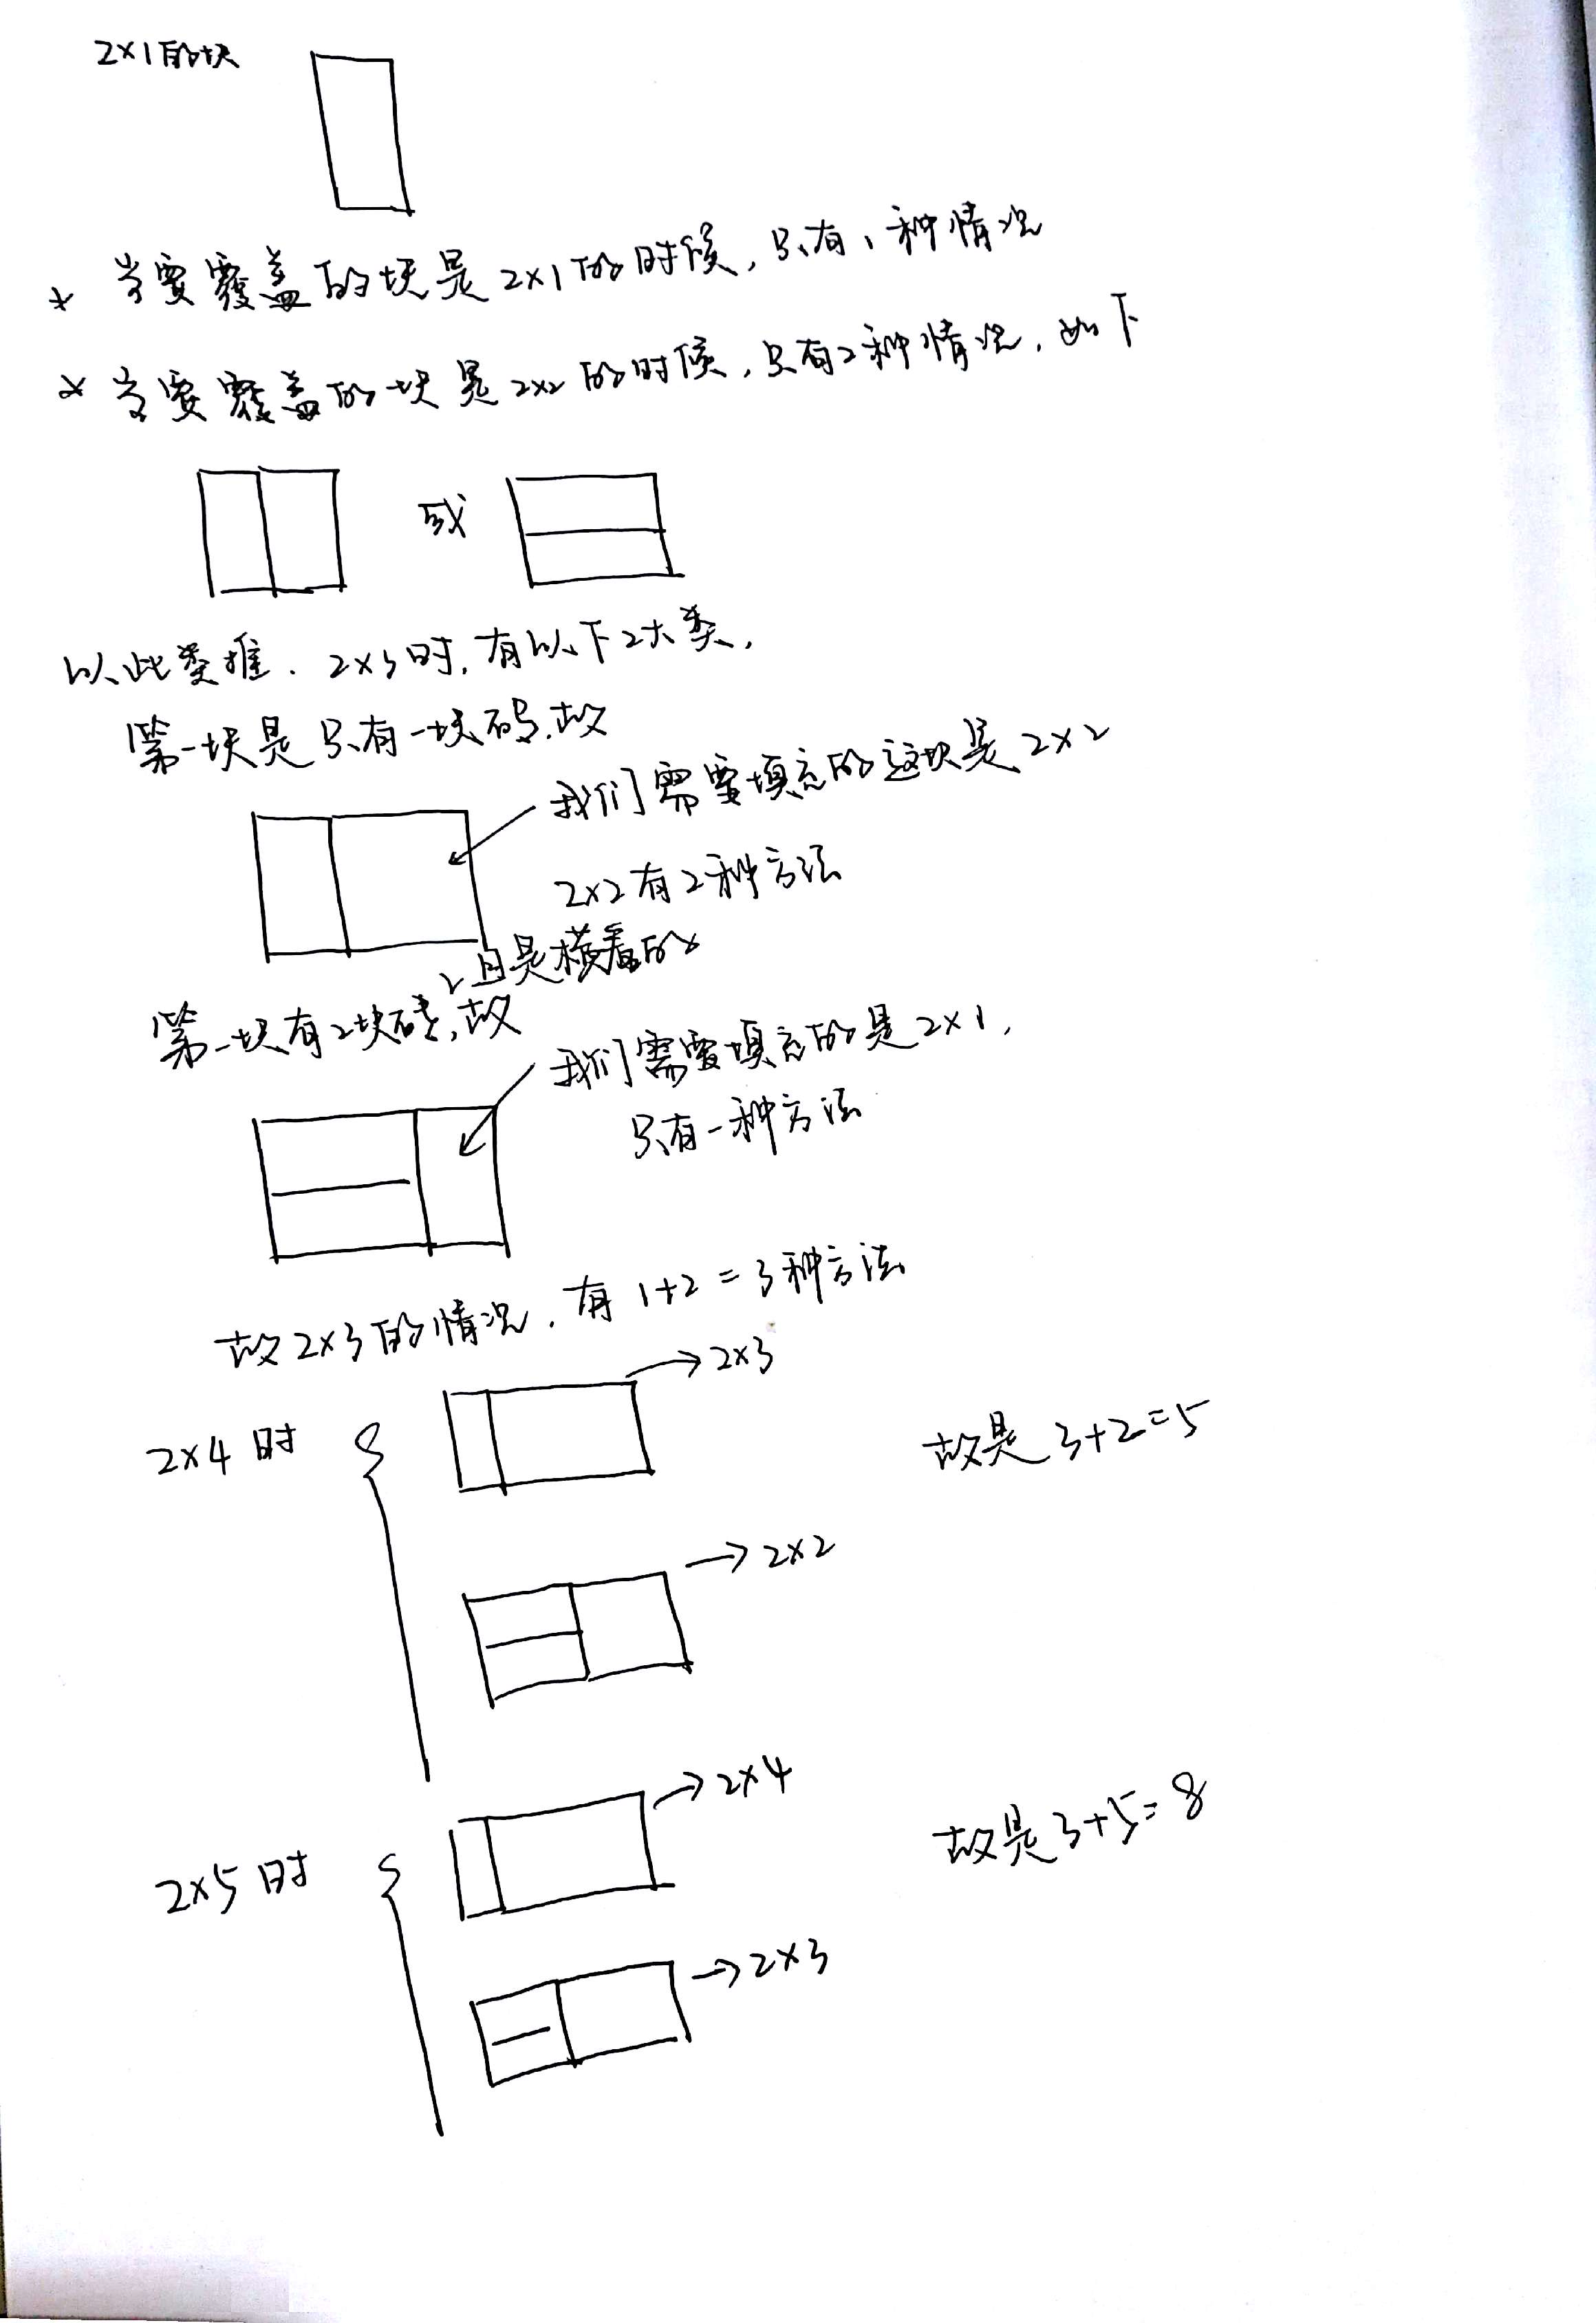 2×1的块
* 当要覆盖的块是2×1的时候,只有1种情况
* 当要覆盖的块是2×2的时候,只有2种情况,如下
或
以此类推. 2×3时,有以下2大类,
第一块是只有一块砖,故
我们需要填充的这块是2×2
2×2有2种方法
且是横着的
第一块有2块砖,故
我们需要填充的是2×1,
只有一种方法
故2×3的情况,有1+2=3种方法
→2×3
2×4时
故是3+2=5
→2×2
→2×4
2×5时
故是3+5=8
→2×3